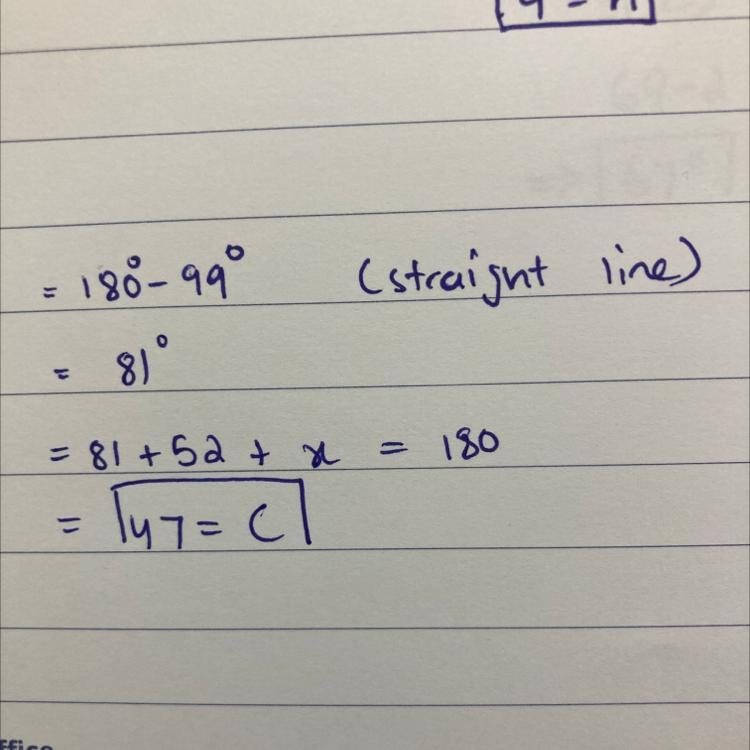 = 180° - 99° (straight line)
= 81°
= 81 + 52 + x = 180
= 47 = C
ffice